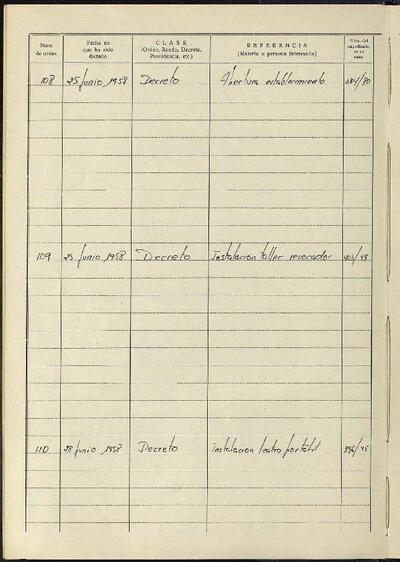 Núm. de orden | Fecha en que ha sido dictado | CLASE (Orden, Bando, Decreto, Providencia, etc.) | REFERENCIA (Materia o persona interesada) | Núm. del expediente, en su caso
108 | 25 Junio 1958 | Decreto | Apertura establecimiento | 384/80
109 | 25 Junio 1958 | Decreto | Instalación taller revocador | 403/48
110 | 28 Junio 1958 | Decreto | Instalación teatro portátil